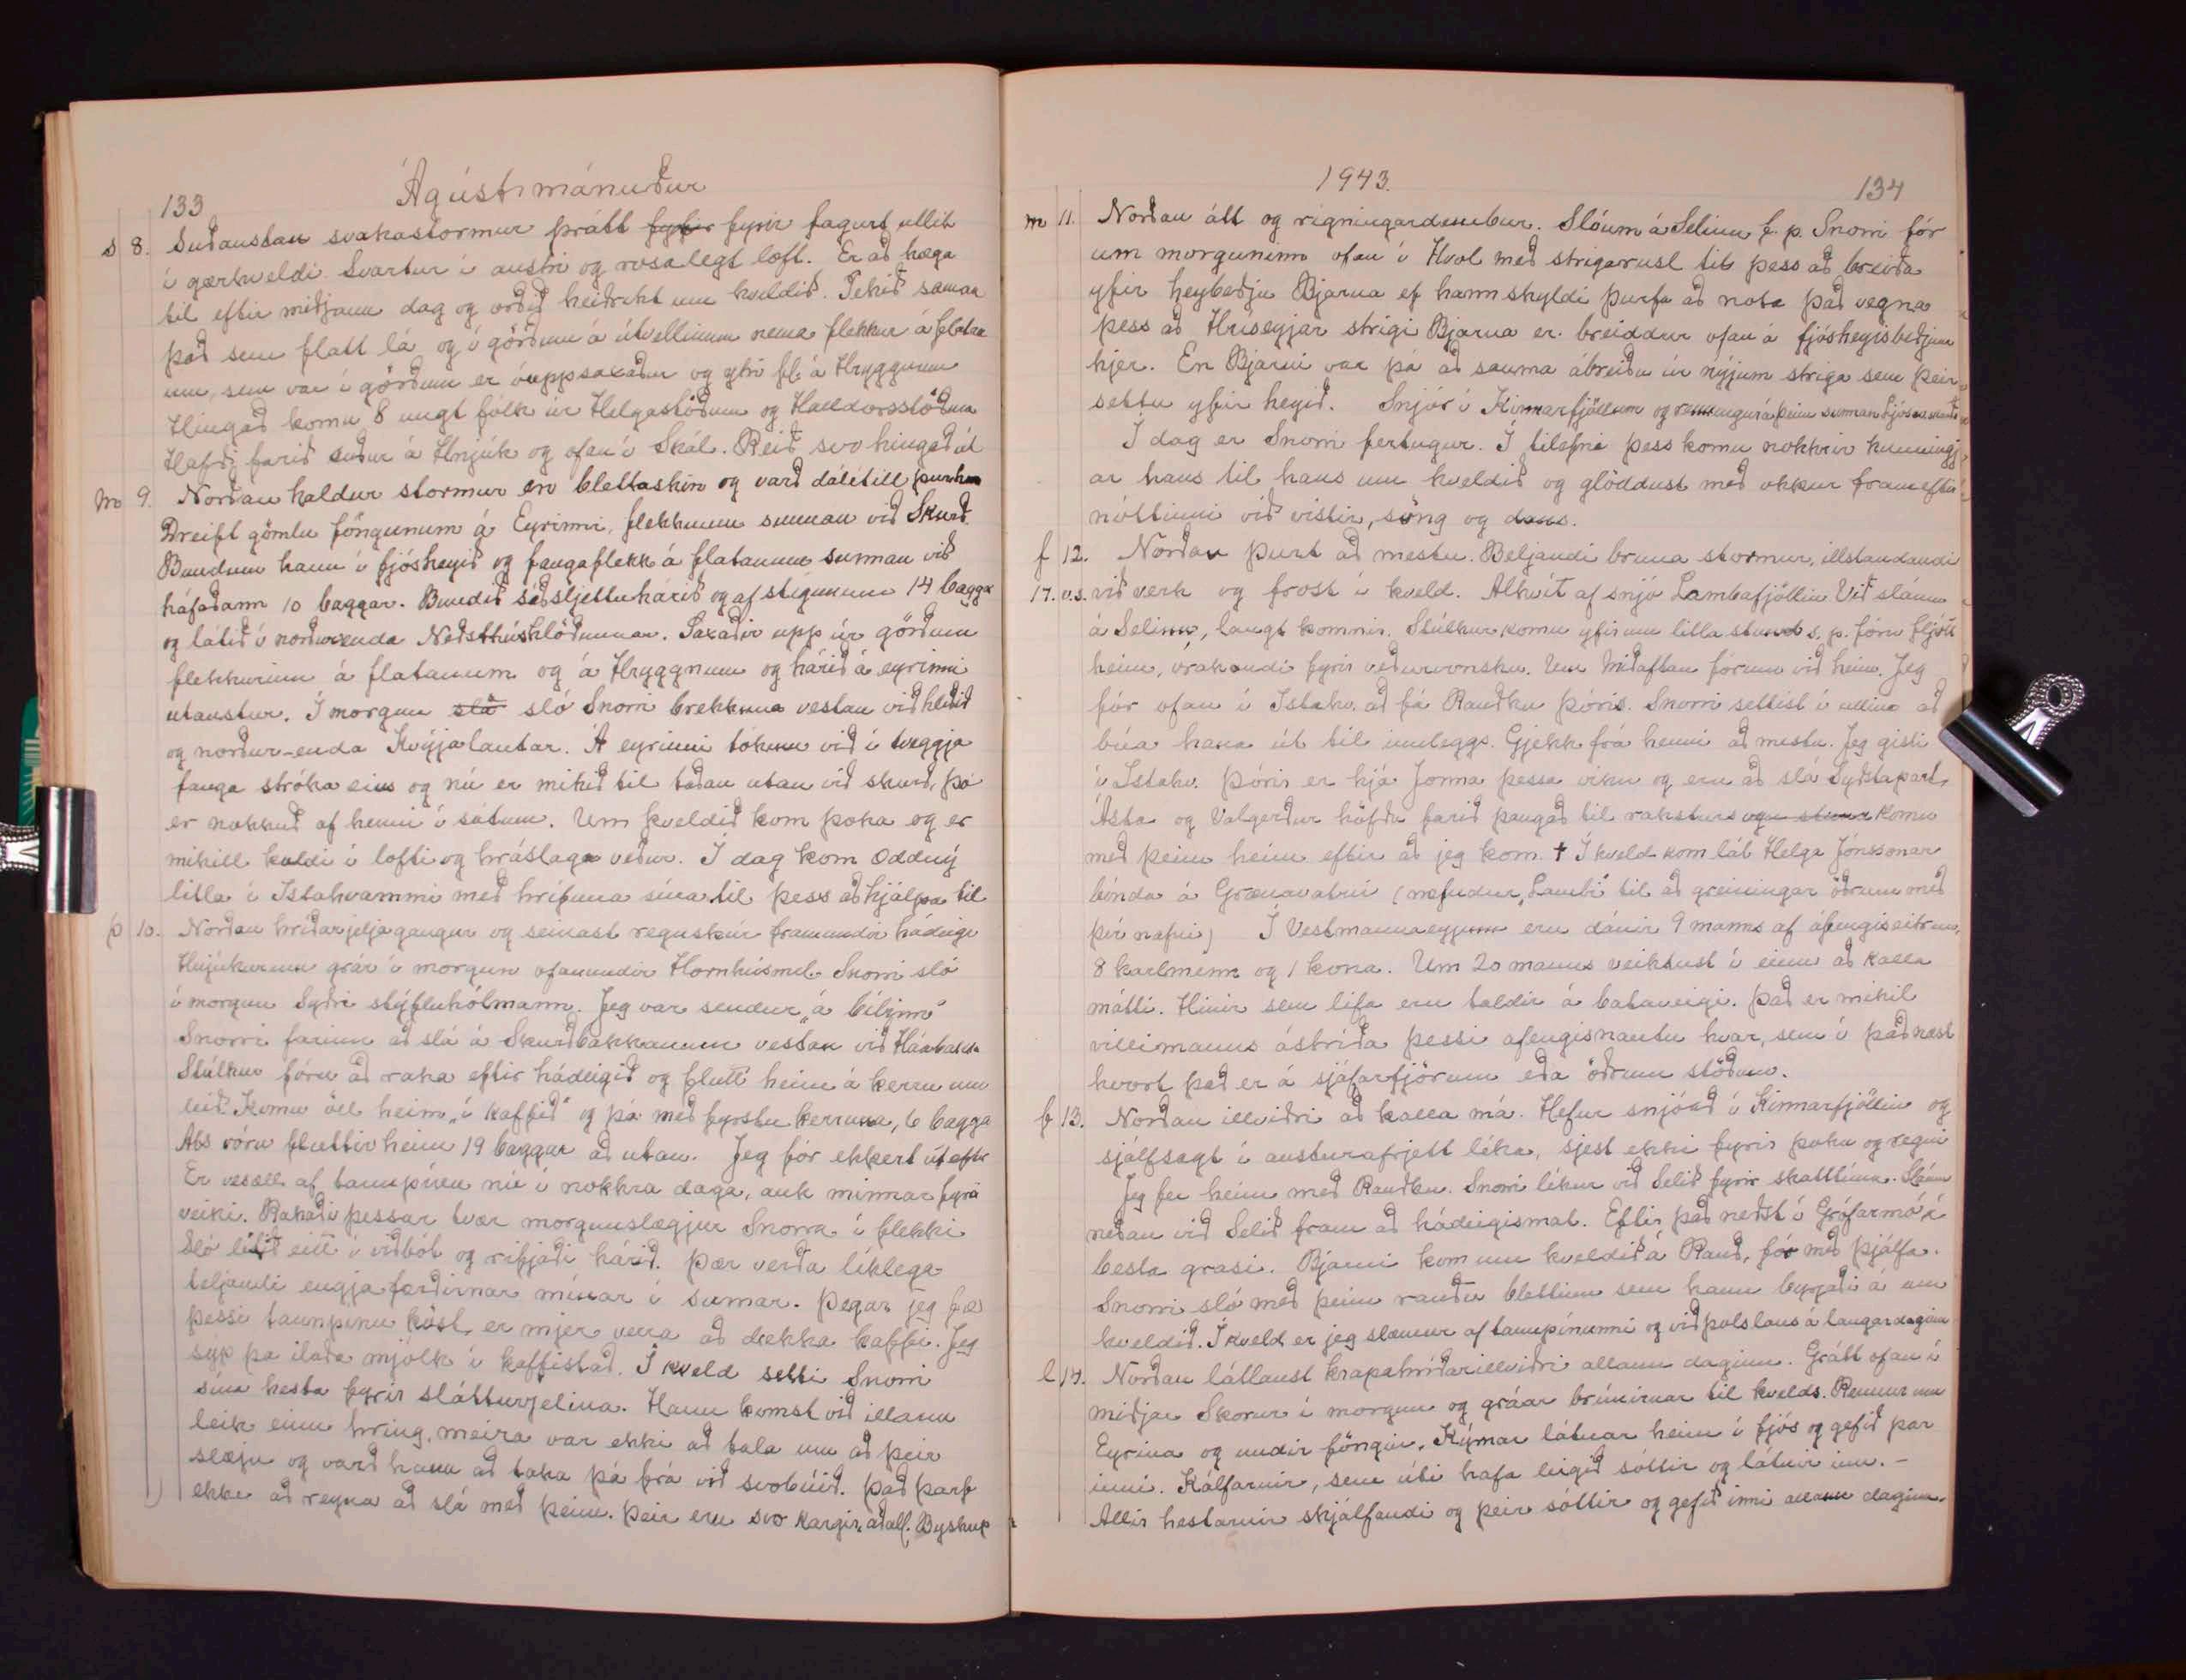 Ágústmánuður
133
s 8. Suðaustan svakastormur þrátt fyrir fagurt ullit
í gærkveldi. Svartur í austri og rosalegt loft. Er að hæga
til eftir miðjann dag og orðið heiðríkt um kveldið. Tekið saman
það sem flatt lá og í görðum á útvellinum nema flekkur á flatan
um, sem var í görðum er óuppsaxaður og ytri fl. á Hryggnum
Hingað komu 8 ungt fólk úr Helgastöðum og Halldorsstöðum
Hafði farið suður á Hnjúk og ofan í Skál. Reið svo hingað út
m 9. Norðan kaldur stormur en blettaskin og varð dálítill þurkur
Dreift gömlu föngunum á Eyrinni, flekknum sunnan við Skurð.
Bundum hann í fjósheyið og fangaflekk á flatanum sunnan við
háfaðann 10 baggar. Bundið sáðsljettuhárið og af stígnum 14 bagga
og látið í norðurenda Neðsthúshlöðunnar. Saxaðir upp úr görðum
flekkurinn á flatanum og á Hryggnum og hárið á eyrinni
utaustur. Í morgun slá sló Snorri brekkuna vestan við hliðið
og norður-enda Kvýjalautar. Á eyrinni tókum við í tveggja
fanga stróka eins og nú er mikið til taðan utan við skurð, þó
er nokkuð af henni í sátum. Um kveldið kom þoka og er
mikill kuldi í lofti og hráslaga veður. Í dag kom Oddný
litla í Ístahvammi með hrífuna sína til þess að hjálpa til
þ 10. Norðan hríðarjeljagangur og seinast regnskúr framundir hádegi
Hnjúkurinn grár í morgun ofanundir Hornhúsmel. Snorri sló
í morgun Syðri stýfluhólmann. Jeg var sendur „á bílinn"
Snorri farinn að slá á Skurðbakkanum vestan við Háabakka
Stúlkur fóru að raka eftir hádegið og flutt heim á kerru um
leið. Komu öll heim „í kaffið" og þá með fyrstu kerruna, 6 bagga
Als vóru fluttir heim 19 baggar að utan. Jeg fór ekkert út eftir
Er vesæll af tannpínu nú í nokkra daga, auk minnar fyrri
veiki. Rakaði þessar tvær morgunslægjur Snorra í flekki
Sló lítið eitt í viðbót og rifjaði hárið. Þær verða líklega
teljandi engjaferðirnar mínar í sumar. Þegar jeg fæ
þessi tannpínu köst, er mjer verra að drekka kaffi. Jeg
sýp þa ilaða mjólk í kaffistað. Í kveld setti Snorri
sína hesta fyrir sláttuvjelina. Hann komst við illann
leik einn hring, meira var ekki að tala um að þeir
slæju og varð hann að taka þá frá við svobúið. Það þarf
ekki að reyna að slá með þeim. Þeir eru svo kargir, aðall. Byskup
1943.
134
m 11. Norðan átt og rigningardembur. Slóum á Selinu f. p. Snorri fór
um morguninn ofan í Hvol með strigarusl til þess að breiða
yfir heybeðju Bjarna ef hann skyldi þurfa að nota það vegna
þess að Hríseyjar strigi Bjarna er breiddur ofan á fjósheyisbeðjum
hjer. En Bjarni var þá að sauma ábreiðu úr nýjum striga sem þeir
settu yfir heyið. Snjór í Kinnarfjöllum og renningur á þeim sunnan Ljósavatns
Í dag er Snorri fertugur. Í tilefni þess komu nokkrir kunningj
ar hans til hans um kveldið og glöddust með okkur fram eftir
nóttinni við vistir, söng og dans.
f 12. Norðan þurt að mestu. Beljandi bruna stormur, illstandandi
17. v.s. við verk og frost í kveld. Alhvít af snjó Lambafjöllin Við sláum
á Selinu, langt komnir. Stúlkur komu yfir um litla stund s. p. fóru fljótt
heim, órakandi fyrir veðurvonsku. Um Miðaftan fórum við heim. Jeg
fór ofan í Ístahv. að fá Rauðku Þóris. Snorri settist í ullina að
búa hana út til innleggs. Gjekk frá henni að mestu. Jeg gisti
í Ístahv. Þórir er hjá Jonna þessa viku og eru að slá Syðstapart.
Ásta og Valgerður höfðu farið þangað til raksturs komu
með þeim heim eftir að jeg kom. † Í kveld kom lát Helga Jónssonar
bónda á Grænavatni (nefndur „Lambi" til að greiningar öðrum með
því nafni) Í Vestmannaeyjum eru dánir 9 manns af áfengiseitrun,
8 karlmenn og 1 kona. Um 20 manns veiktust í einu að kalla
mátti. Hinir sem lifa eru taldir á batavegi. Það er mikil
villimanns ástríða þessi afengisnautn hvar, sem í það næst
hvort það er á sjáfarfjörum eða öðrum stöðum.
f 13. Norðan illviðri að kalla má. Hefur snjóað í Kinnarfjöllin og
sjálfsagt í austurafrjett líka, sjest ekki fyrir þoku og regni
Jeg fer heim með Rauðku. Snorri líkur við Selið fyrir skattlíma. Sláum
neðan við Selið fram að hádegismat. Eftir það neðst í Grófarmó í
besta grasi. Bjarni kom um kveldið á Rauð, fór með Þjálfa.
Snorri sló með þeim rauðu blettinn sem hann byrjaði á um
kveldið. Í kveld er jeg slæmur af tannpínunni og viðþolslaus á laugardaginn
l 14. Norðan látlaust krapahríðarillviðri allann daginn. Grátt ofan í
miðjar Skorur í morgun og gráar brúnirnar til kvelds. Rennur um
Eyrina og undir föngin. Kýrnar látnar heim í fjós og gefið þar
inni. Kálfarnir, sem úti hafa leigið sóttir og látnir inn. -
Allir hestarnir skjálfandi og þeir sóttir og gefið inni allann daginn.